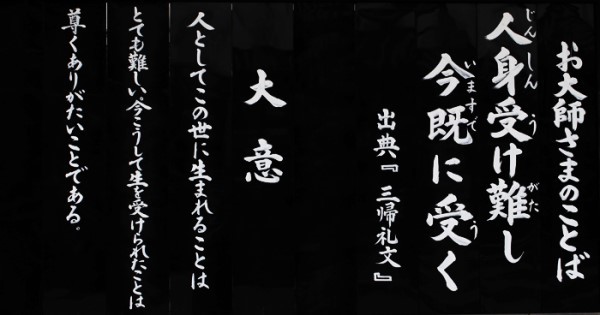 お大師さまのことば
人身受け難し
今既に受く
出典『三帰礼文』
大意
人としてこの世に生まれることは
とても難しい、今こうして生を受けられたことは
尊くありがたいことである。
じんしん う がた
いますで う